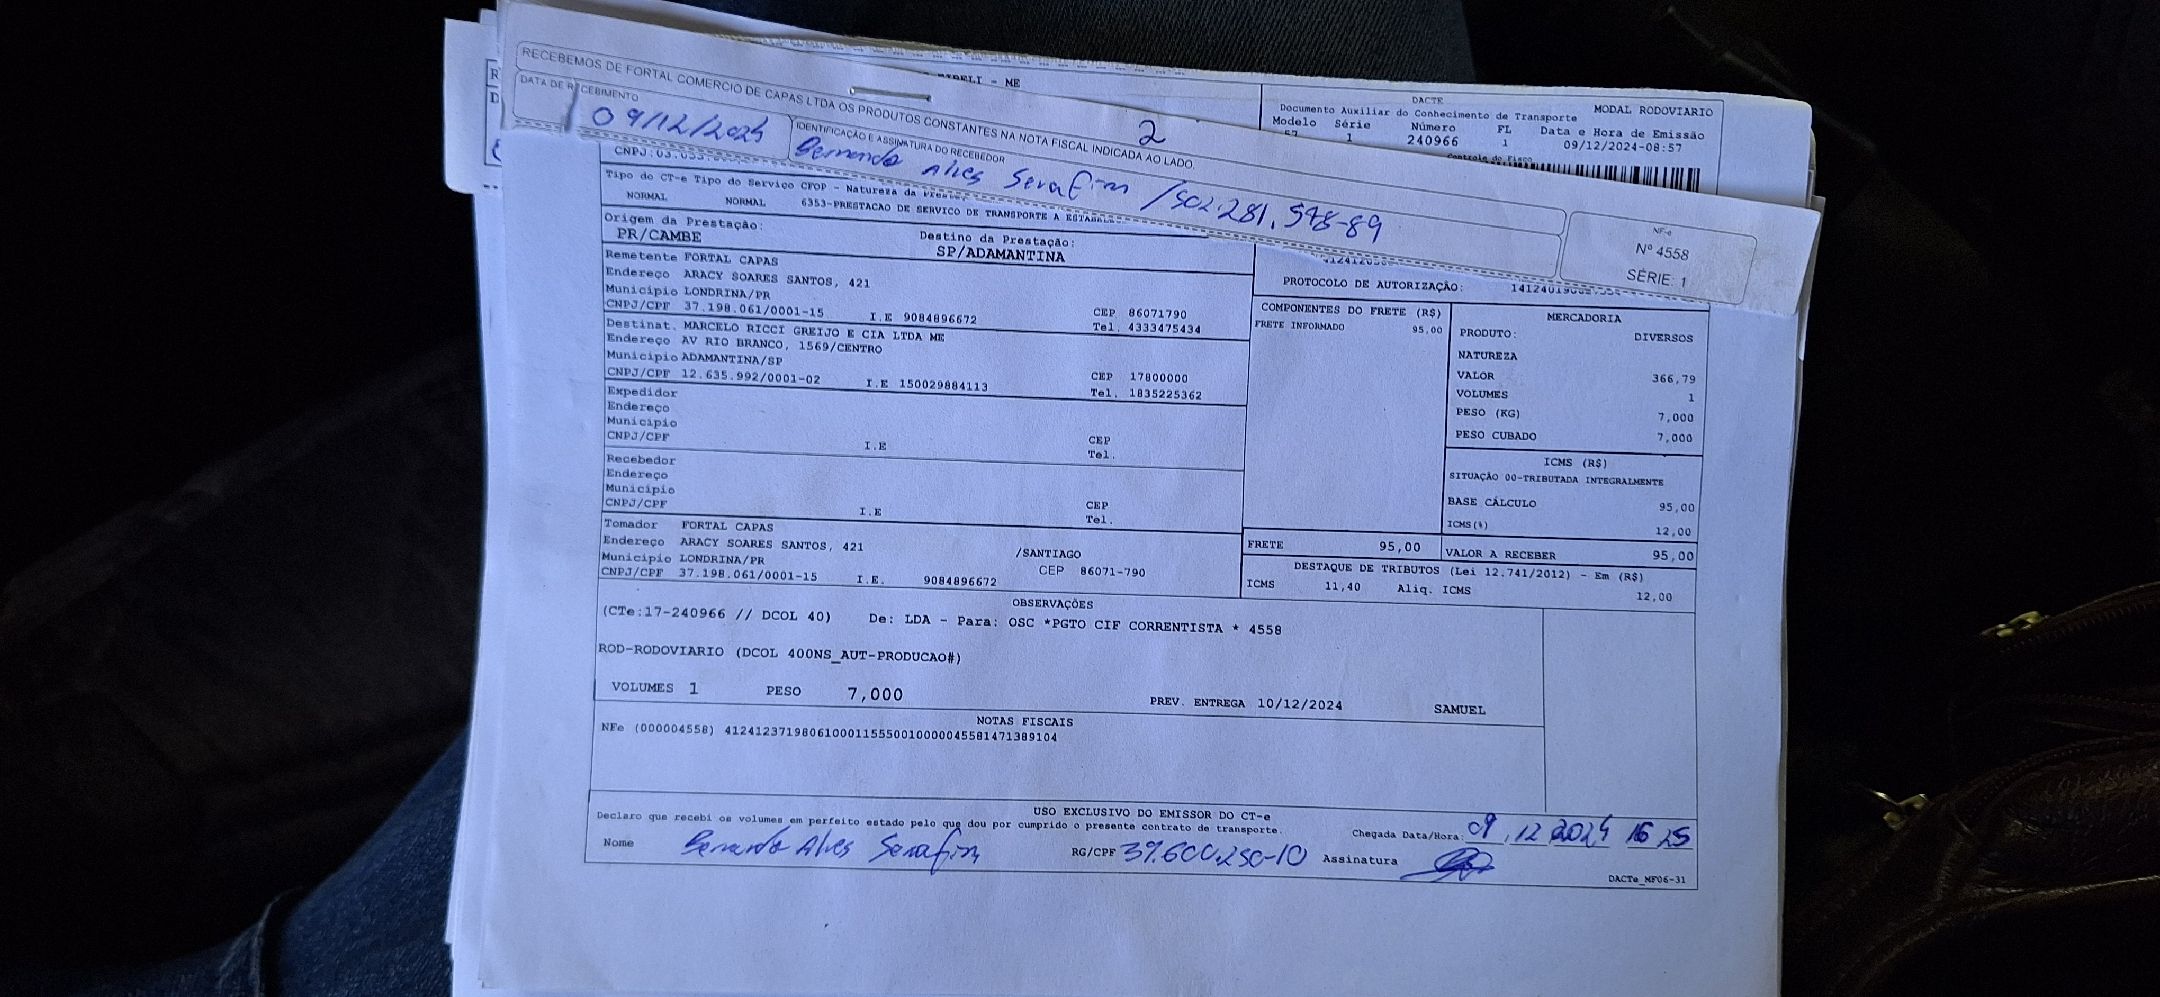 RECEBEMOS DE FORTAL COMERCIO DE CAPAS LTDA OS PRODUTOS CONSTANTES NA NOTA FISCAL INDICADA AO LADO.
DATA DE RECEBIMENTO
09/12/2024
IDENTIFICAÇÃO E ASSINATURA DO RECEBEDOR
Alves Serafim /502.281.598-89
2
NF-e
Nº 4558
SÉRIE: 1
- ME
DACTE
Documento Auxiliar do Conhecimento de Transporte
MODAL RODOVIARIO
Modelo Série Número FL Data e Hora de Emissão
57 1 240966 1 09/12/2024-08:57
Controle do Fisco
Tipo do CT-e Tipo do Serviço CFOP - Natureza da
NORMAL NORMAL 6353-PRESTACAO DE SERVICO DE TRANSPORTE A
Origem da Prestação:
PR/CAMBE
Destino da Prestação:
SP/ADAMANTINA
Remetente FORTAL CAPAS
Endereço ARACY SOARES SANTOS, 421
Município LONDRINA/PR CEP 86071790
CNPJ/CPF 37.198.061/0001-15 I.E 9084896672 Tel. 4333475434
Destinat. MARCELO RICCI GREIJO E CIA LTDA ME
Endereço AV RIO BRANCO, 1569/CENTRO
Município ADAMANTINA/SP CEP 17800000
CNPJ/CPF 12.635.992/0001-02 I.E 150029884113 Tel. 1835225362
Expedidor
Endereço
Município CEP
CNPJ/CPF I.E Tel.
Recebedor
Endereço
Município CEP
CNPJ/CPF I.E Tel.
Tomador FORTAL CAPAS
Endereço ARACY SOARES SANTOS, 421 /SANTIAGO
Município LONDRINA/PR CEP 86071-790
CNPJ/CPF 37.198.061/0001-15 I.E. 9084896672
PROTOCOLO DE AUTORIZAÇÃO:
COMPONENTES DO FRETE (R$)
FRETE INFORMADO 95,00
MERCADORIA
PRODUTO: DIVERSOS
NATUREZA
VALOR 366,79
VOLUMES 1
PESO (KG) 7,000
PESO CUBADO 7,000
ICMS (R$)
SITUAÇÃO 00-TRIBUTADA INTEGRALMENTE
BASE CÁLCULO 95,00
ICMS(%) 12,00
FRETE 95,00 VALOR A RECEBER 95,00
DESTAQUE DE TRIBUTOS (Lei 12.741/2012) - Em (R$)
ICMS 11,40 Aliq. ICMS 12,00
OBSERVAÇÕES
(CTe:17-240966 // DCOL 40) De: LDA - Para: OSC *PGTO CIF CORRENTISTA * 4558
ROD-RODOVIARIO (DCOL 400NS_AUT-PRODUCAO#)
VOLUMES 1 PESO 7,000 PREV. ENTREGA 10/12/2024 SAMUEL
NOTAS FISCAIS
NFe (000004558) 41241237198061000115550010000045581471389104
USO EXCLUSIVO DO EMISSOR DO CT-e
Declaro que recebi os volumes em perfeito estado pelo que dou por cumprido o presente contrato de transporte.
Chegada Data/Hora: 09, 12 2024 16 25
Nome Alves Serafim RG/CPF 39.600.250-10 Assinatura
DACTe_MF06-31